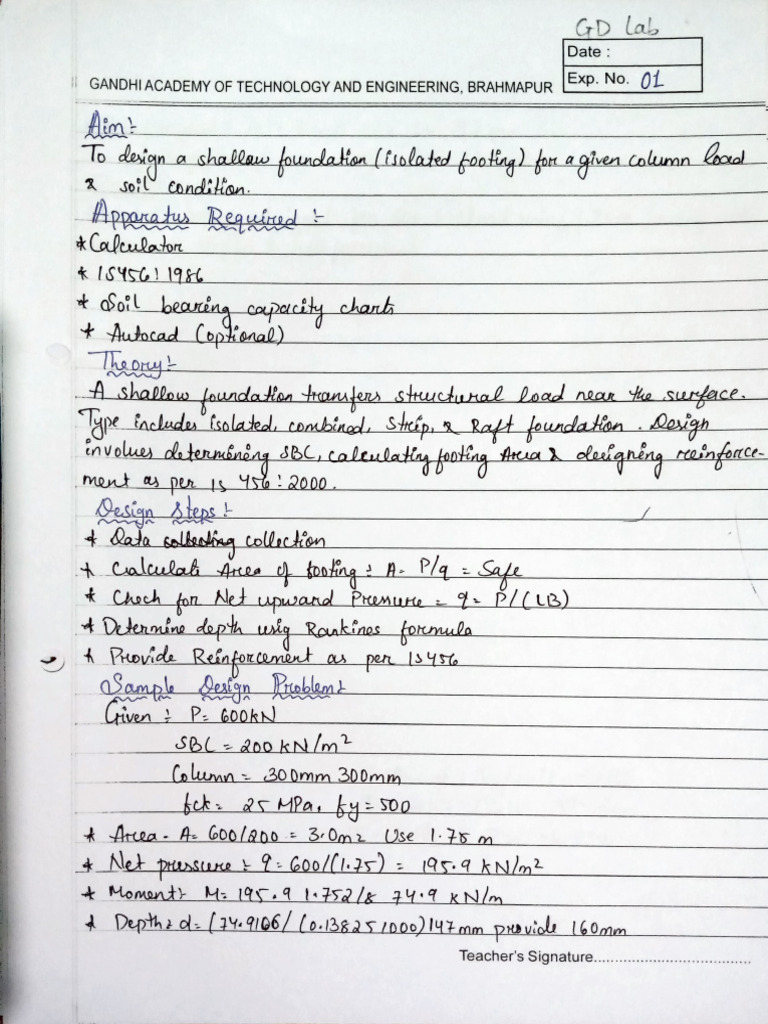 GD Lab
Date :
GANDHI ACADEMY OF TECHNOLOGY AND ENGINEERING, BRAHMAPUR
Exp. No. 01
Aim:-
To design a shallow foundation (isolated footing) for a given column load
& soil condition.
Apparatus Required :-
* Calculator
* IS456:1986
* Soil bearing capacity charts
* Autocad (optional)
Theory:-
A shallow foundation transfers structural load near the surface.
Type includes isolated, combined, strip, & Raft foundation. Design
involves determining SBC, calculating footing Area & designing reinforce-
ment as per IS 456:2000.
Design Steps:-
* Data collecting collection
* Calculate Area of footing: A = P/q = Safe
* Check for Net upward Pressure = q = P/(LB)
* Determine depth usig Rankines formula
* Provide Reinforcement as per IS456
Sample Design Problem:
Given :- P = 600KN
SBC = 200 KN/m2
Column = 300mm 300mm
fck = 25 MPa, fy = 500
* Area - A = 600/200 = 3.0m2 Use 1.75 m
* Net pressure :- q = 600/(1.75) = 195.9 KN/m2
* Moment:- M = 195.9 1.752/8 74.9 KN/m
* Depth: d = (74.9106/(0.138251000) 147mm provide 160mm
Teacher's Signature.....................................